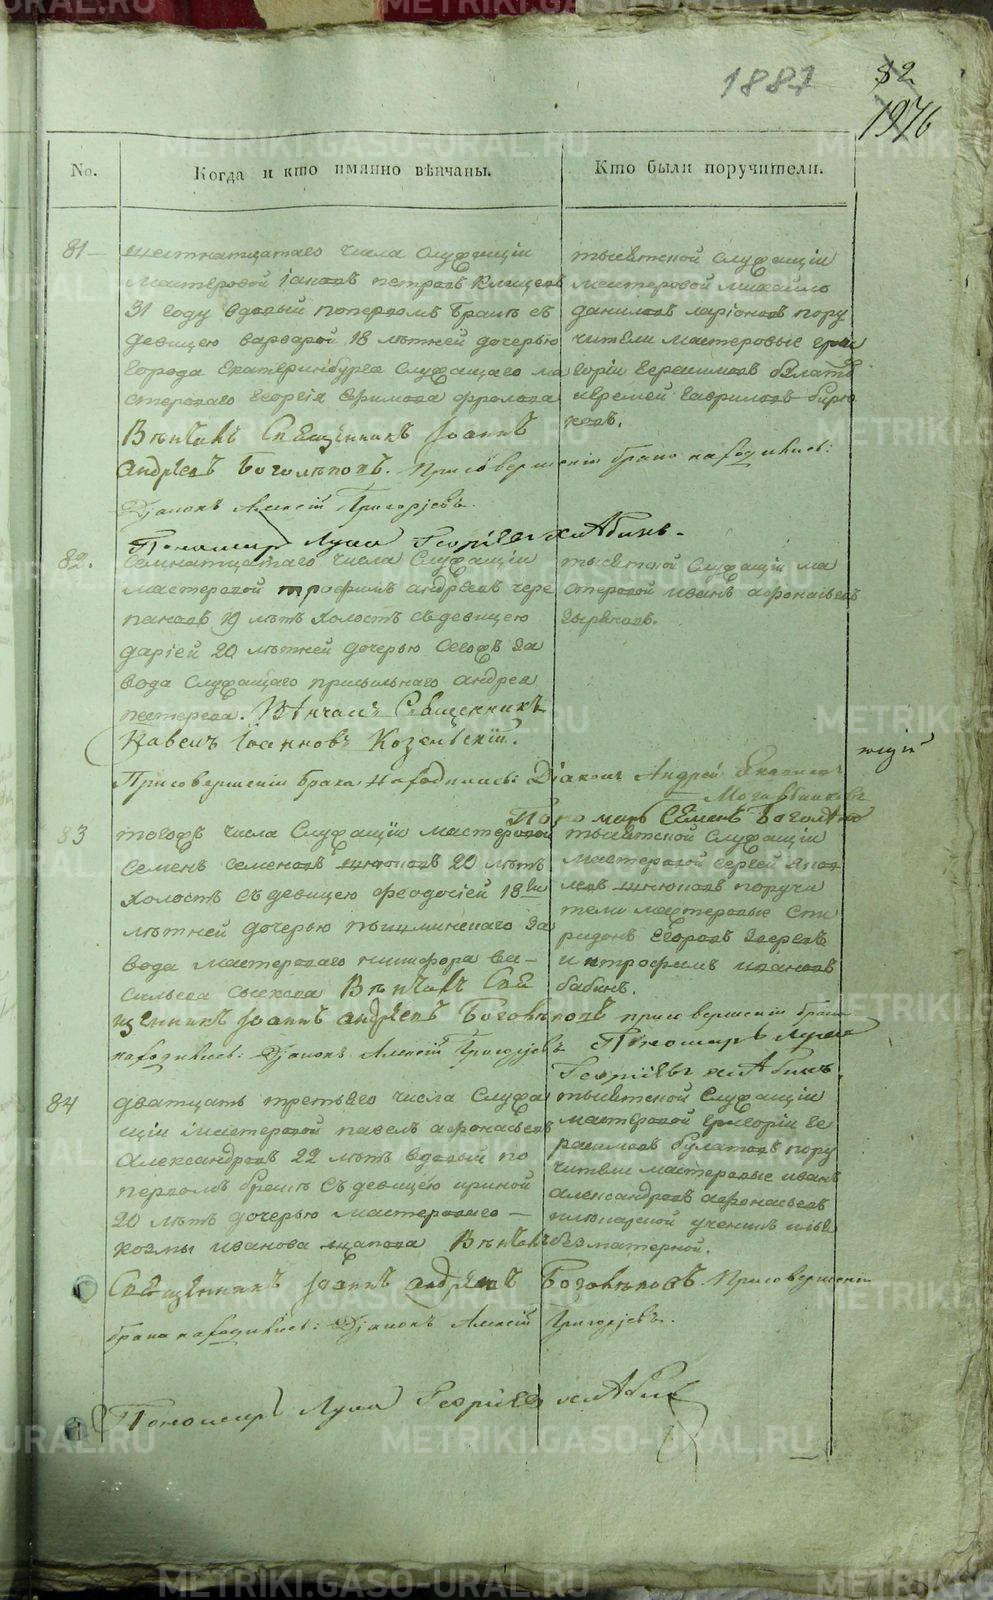 1887
82
1976
No.
Когда и кто имянно вѣнчаны.
Кто были поручители.
81
шестнатцатаго числа служащiи
мастеровой iаковъ петровъ клещевъ
31 году вдовый поперъвомъ бракѣ съ
девицею варварой 18 лѣтней дочерью
города Екатеринбурга служащаго ма
стероваго георгiя Ефимова фролова
Вѣнчалъ Священникъ Iоаннъ
Андреевъ Боголѣповъ. Присовершенiи брака находились:
Дiаконъ Алексiй Григорьевъ.
Пономарь Лука Георгiевъ хлАбинъ.
тысѣтской служащiи
мастеровой михайло
даниловъ ларiоновъ пору
чители мастеровые григ
горiи герасимовъ булатовъ
иеремей гавриловъ бирю
ковъ.
82.
семнатцатаго числа служащiи
мастеровой трофимъ андреевъ чере
пановъ 19 лѣтъ холостъ съдевицею
дарiей 20 лѣтней дочерью сегожъ за
вода служащаго присыльнаго андрея
пестерева. Вѣнчалъ Священникъ
Павелъ Iоанновъ Козельскiй.
Присовершенiи брака находились: Дiаконъ Андрей
Пономарь Семенъ
тысѣтской служащiи ма
стеровой иванъ афонасьевъ
зыряновъ.
83
тогожъ числа служащiи мастеровой
семенъ семеновъ шнюковъ 20 лѣтъ
холостъ съдевицею феодосiей 18ти
лѣтней дочерью пышминскаго за
вода мастероваго никифора ва-
сильева сыскова Вѣнчалъ Свя
щенникъ Iоаннъ Андреевъ Боголѣповъ присовершенiи брака
находились: Дiаконъ Алексiй Григорьевъ Пономарь Лука
Георгiевъ хлАбинъ.
тысѣтской служащiи
мастеровой сергей яков
левъ шнюковъ поручи
тели мастеровые спи
ридонъ Егоровъ зверевъ
и трофимъ ивановъ
бабинъ.
84
дватцать третьяго числа служа
щiи мастеровой павелъ афонасьевъ
Александровъ 22 лѣтъ вдовый по
первомъ бракѣ съдевицею ириной
20 лѣтъ дочерью мастероваго
козмы иванова щапова Вѣнчалъ
Священникъ Iоаннъ Андреевъ Боголѣповъ. Присовершенiи
брака находились: Дiаконъ Алексiй Григорьевъ.
Пономарь Лука Георгiевъ хлАбинъ
тысѣтской служащiи
мастеровой григорiи ге
расимовъ булатовъ пору
чители мастеровые иванъ
александровъ афонасьевъ
ученикъ илья
безматерной.